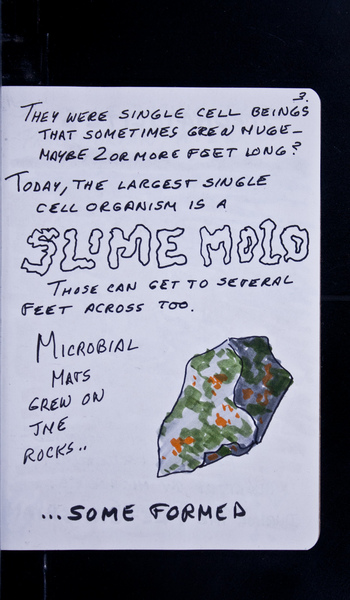 3.
THEY WERE SINGLE CELL BEINGS
THAT SOMETIMES GREW HUGE–
MAYBE 2 OR MORE FEET LONG?
TODAY, THE LARGEST SINGLE
CELL ORGANISM IS A
SLIME MOLD
THOSE CAN GET TO SEVERAL
FEET ACROSS TOO.
MICROBIAL
MATS
GREW ON
THE
ROCKS..
...SOME FORMED